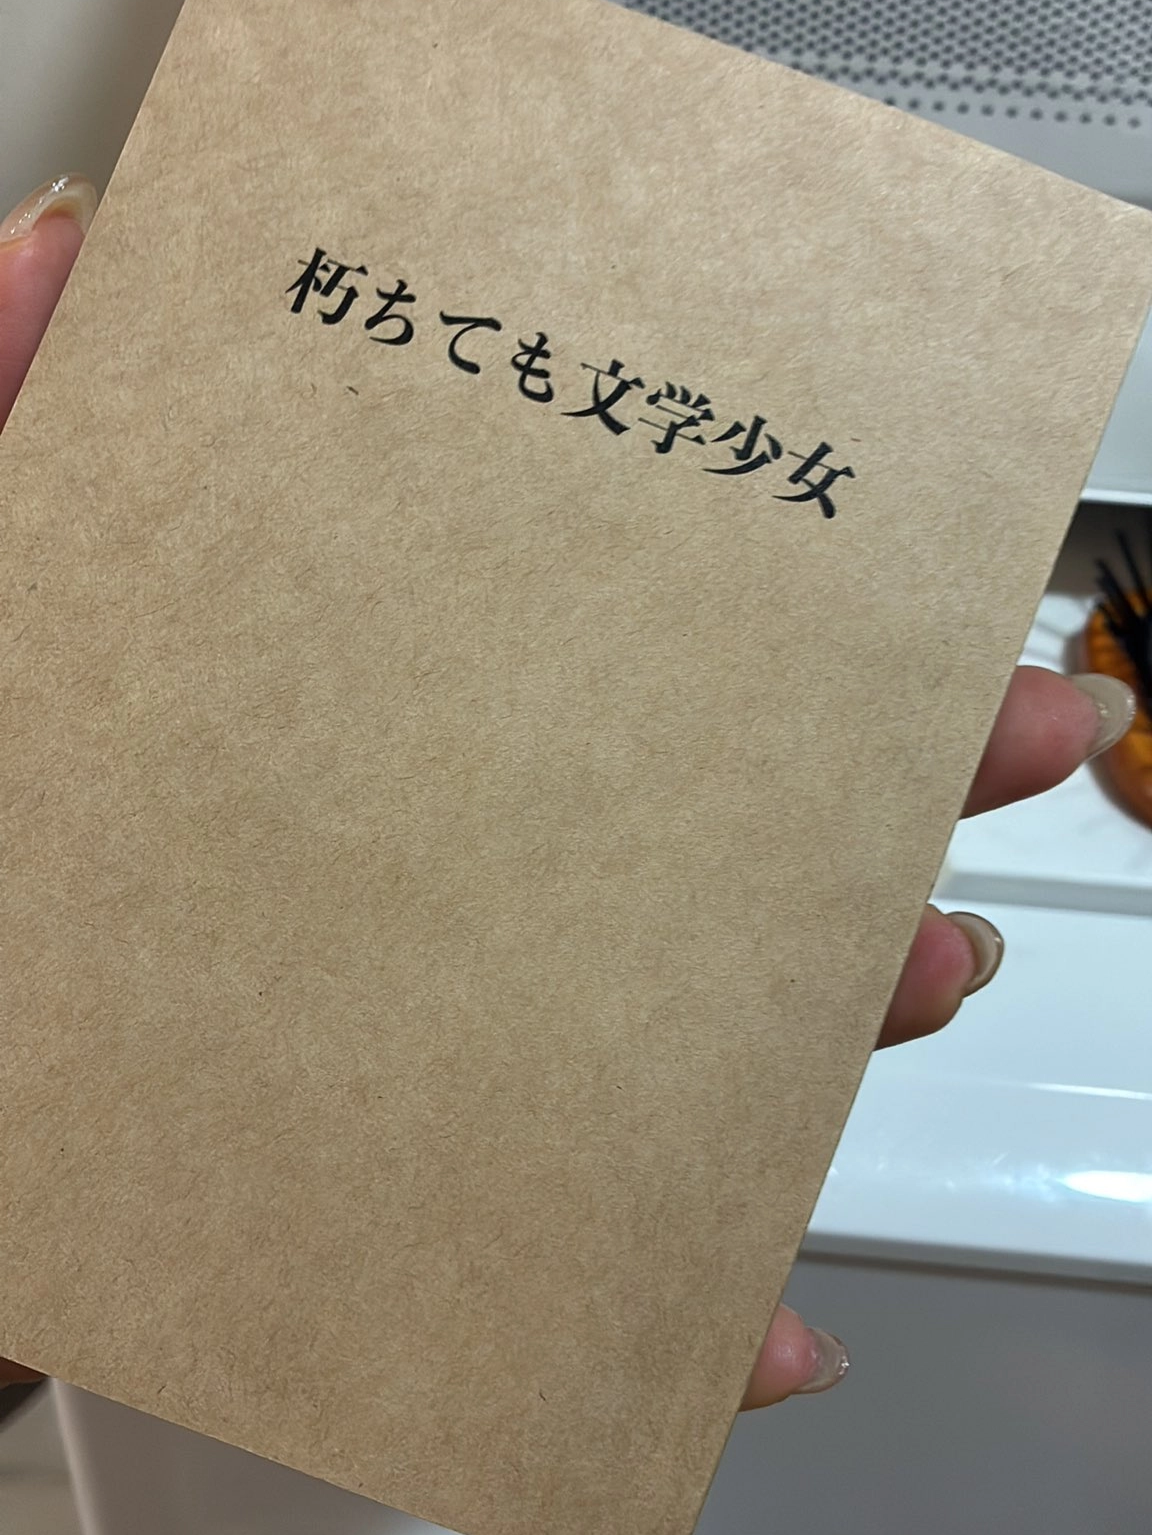 朽ちても文学少女